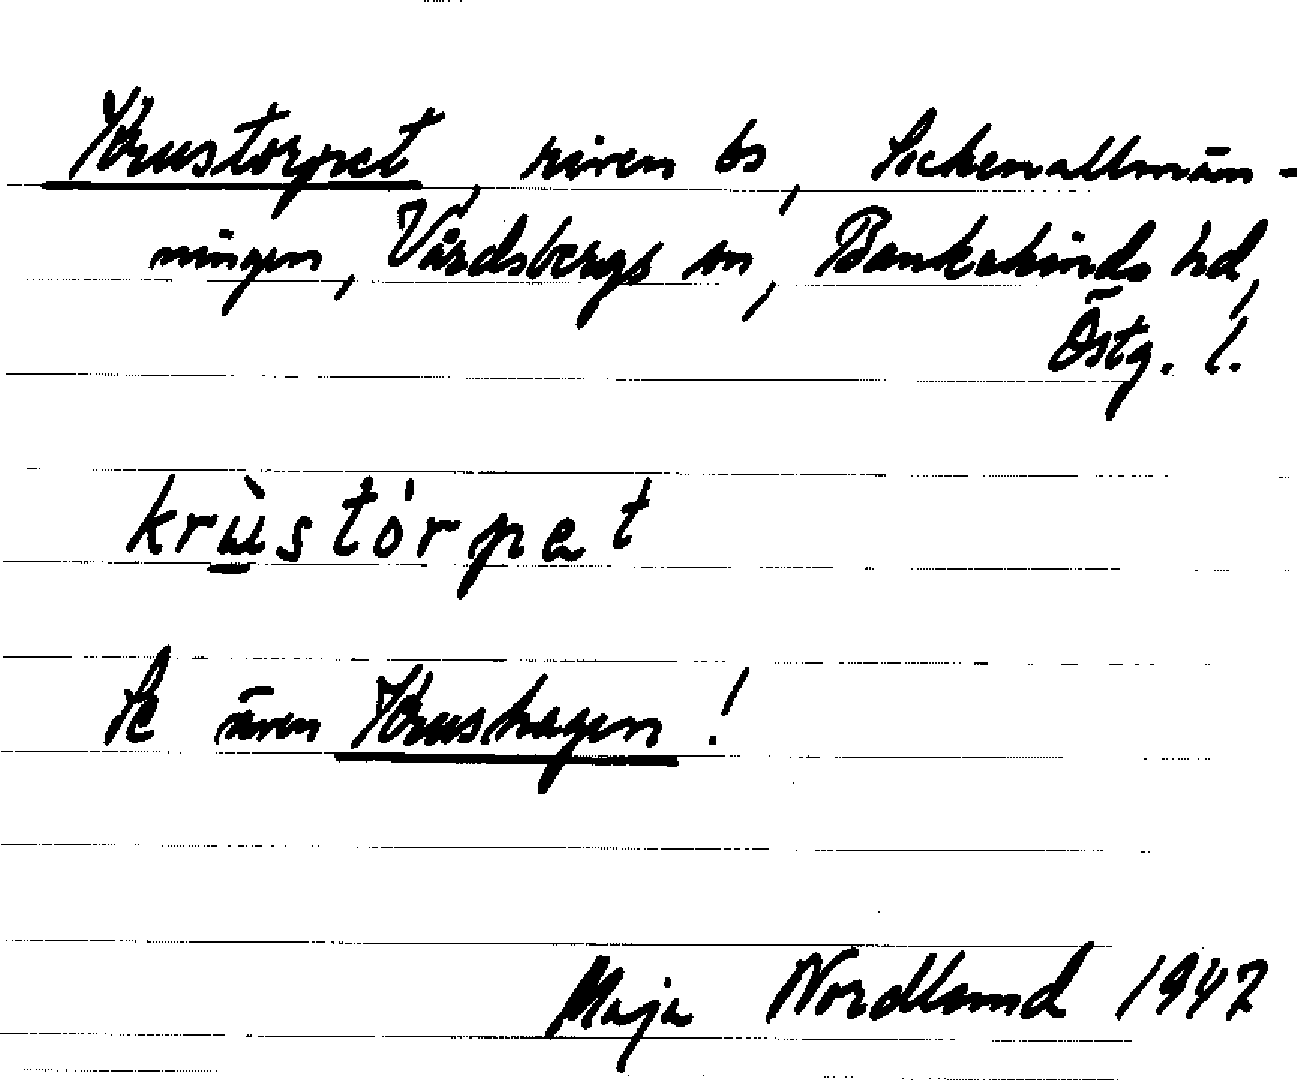 Krustorpet, riven bs, Sickenallmän-
ningen, Vårdsbergs sn, Bankekinds hd,
Östg. l.
krùstórpet
Se även Krushagen!
Maja Nordlund 1947